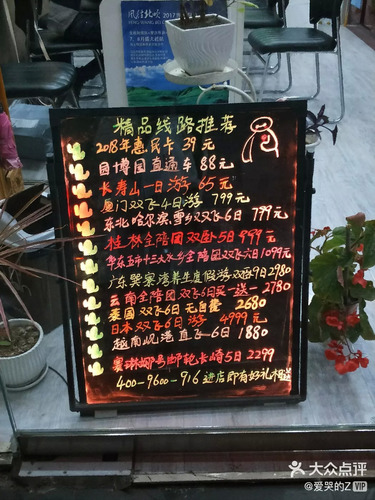 风情北欧
2017
精品线路推荐
2018年惠民卡 39元
园博园直通车 88元
长寿山一日游 65元
厦门双飞4日游 799元
东北哈尔滨雪乡双飞6日 799元
桂林全陪团双卧5日999元
华东五市十三大水乡全陪团双飞六日1099元
广东巽寮湾养生度假游双卧9日2980
云南全陪团双飞6日买一送一2780
泰国双飞6日无自费 2680
日本双飞6日游 4999元
越南岘港直飞6日 1880
赛琳娜号邮轮长崎5日2299
400-9600-916进店即有好礼相送
大众点评
@爱哭的Z VIP